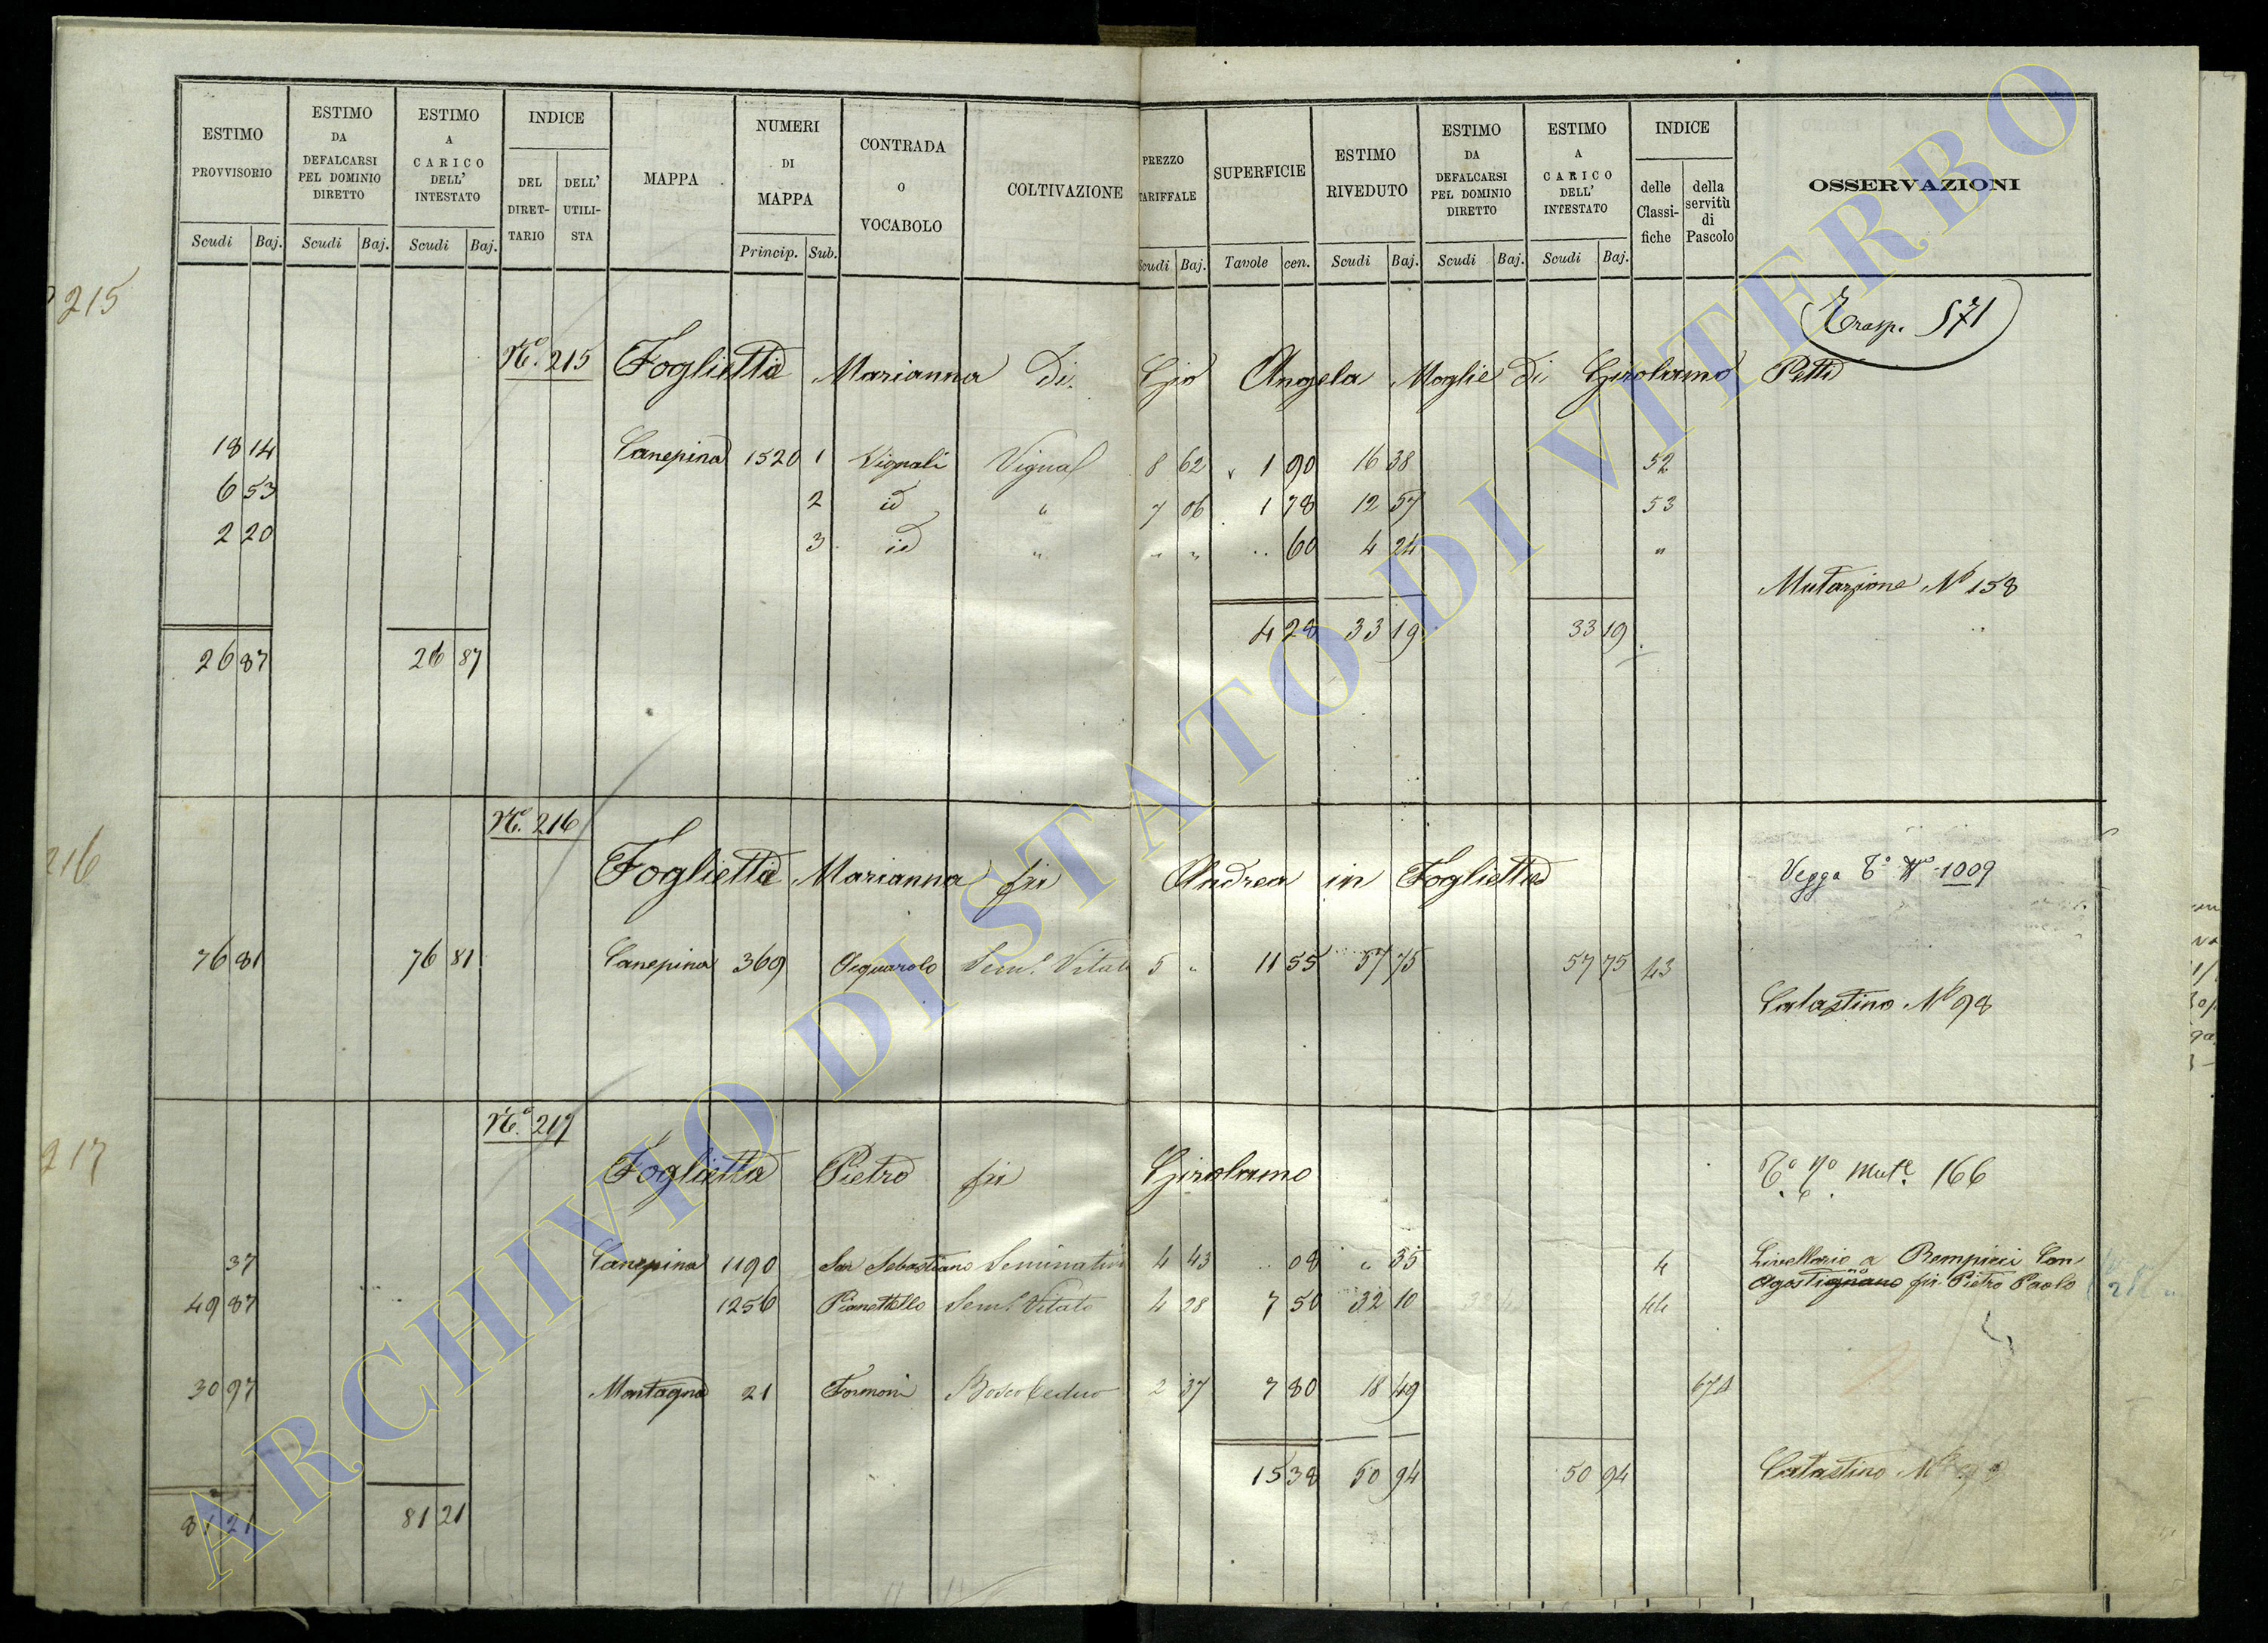 ESTIMO PROVVISORIO Scudi Baj.
ESTIMO DA DEFALCARSI PEL DOMINIO DIRETTO Scudi Baj.
ESTIMO A CARICO DELL' INTESTATO Scudi Baj.
INDICE DEL DIRET- TARIO DELL' UTILI- STA
MAPPA
NUMERI DI MAPPA Princip. Sub.
CONTRADA O VOCABOLO
COLTIVAZIONE
PREZZO TARIFFALE Scudi Baj.
SUPERFICIE Tavole cen.
ESTIMO RIVEDUTO Scudi Baj.
ESTIMO DA DEFALCARSI PEL DOMINIO DIRETTO Scudi Baj.
ESTIMO A CARICO DELL' INTESTATO Scudi Baj.
INDICE delle Classi- fiche della servitù di Pascolo
OSSERVAZIONI
215
Trasp. 571
N.º 215 Foglietta Marianna di Gio Angela Moglie di Girolamo Petti
18 14 Canepina 1520 1 Vignali Vignal 8 62 " 1 90 16 38 52
6 53 2 id " 7 06 1 78 12 57 53
2 20 3 id " " " .. 60 4 24 "
Mutazione Nº 158
26 87 26 87 4 28 33 19 33 19
216
N.º 216
Foglietta Marianna fu Andrea in Foglietta
Vegga Tº Nº 1009
76 81 76 81 Canepina 369 Sem.º Vitato 5 " 11 55 57 75 57 75 43
Catastino Nº 98
217
N.º 217
Foglietta Pietro fu Girolamo
Tº Nº Mutº. 166
37 Canepina 1190 San Sebastiano Seminativo 4 43 .. 08 " 35 4 Livellario a Rempicci Can.
Agostignano no fu Pietro Paolo
49 87 1256 Pianettello Sem.º Vitato 4 28 7 50 32 10 44
30 97 Montagna 21 Formoni Bosco Ceduo 2 37 7 80 18 49 67
15 38 50 94 50 94 Catastino Nº
81 21 81 21
ARCHIVIO DI STATO DI VITERBO